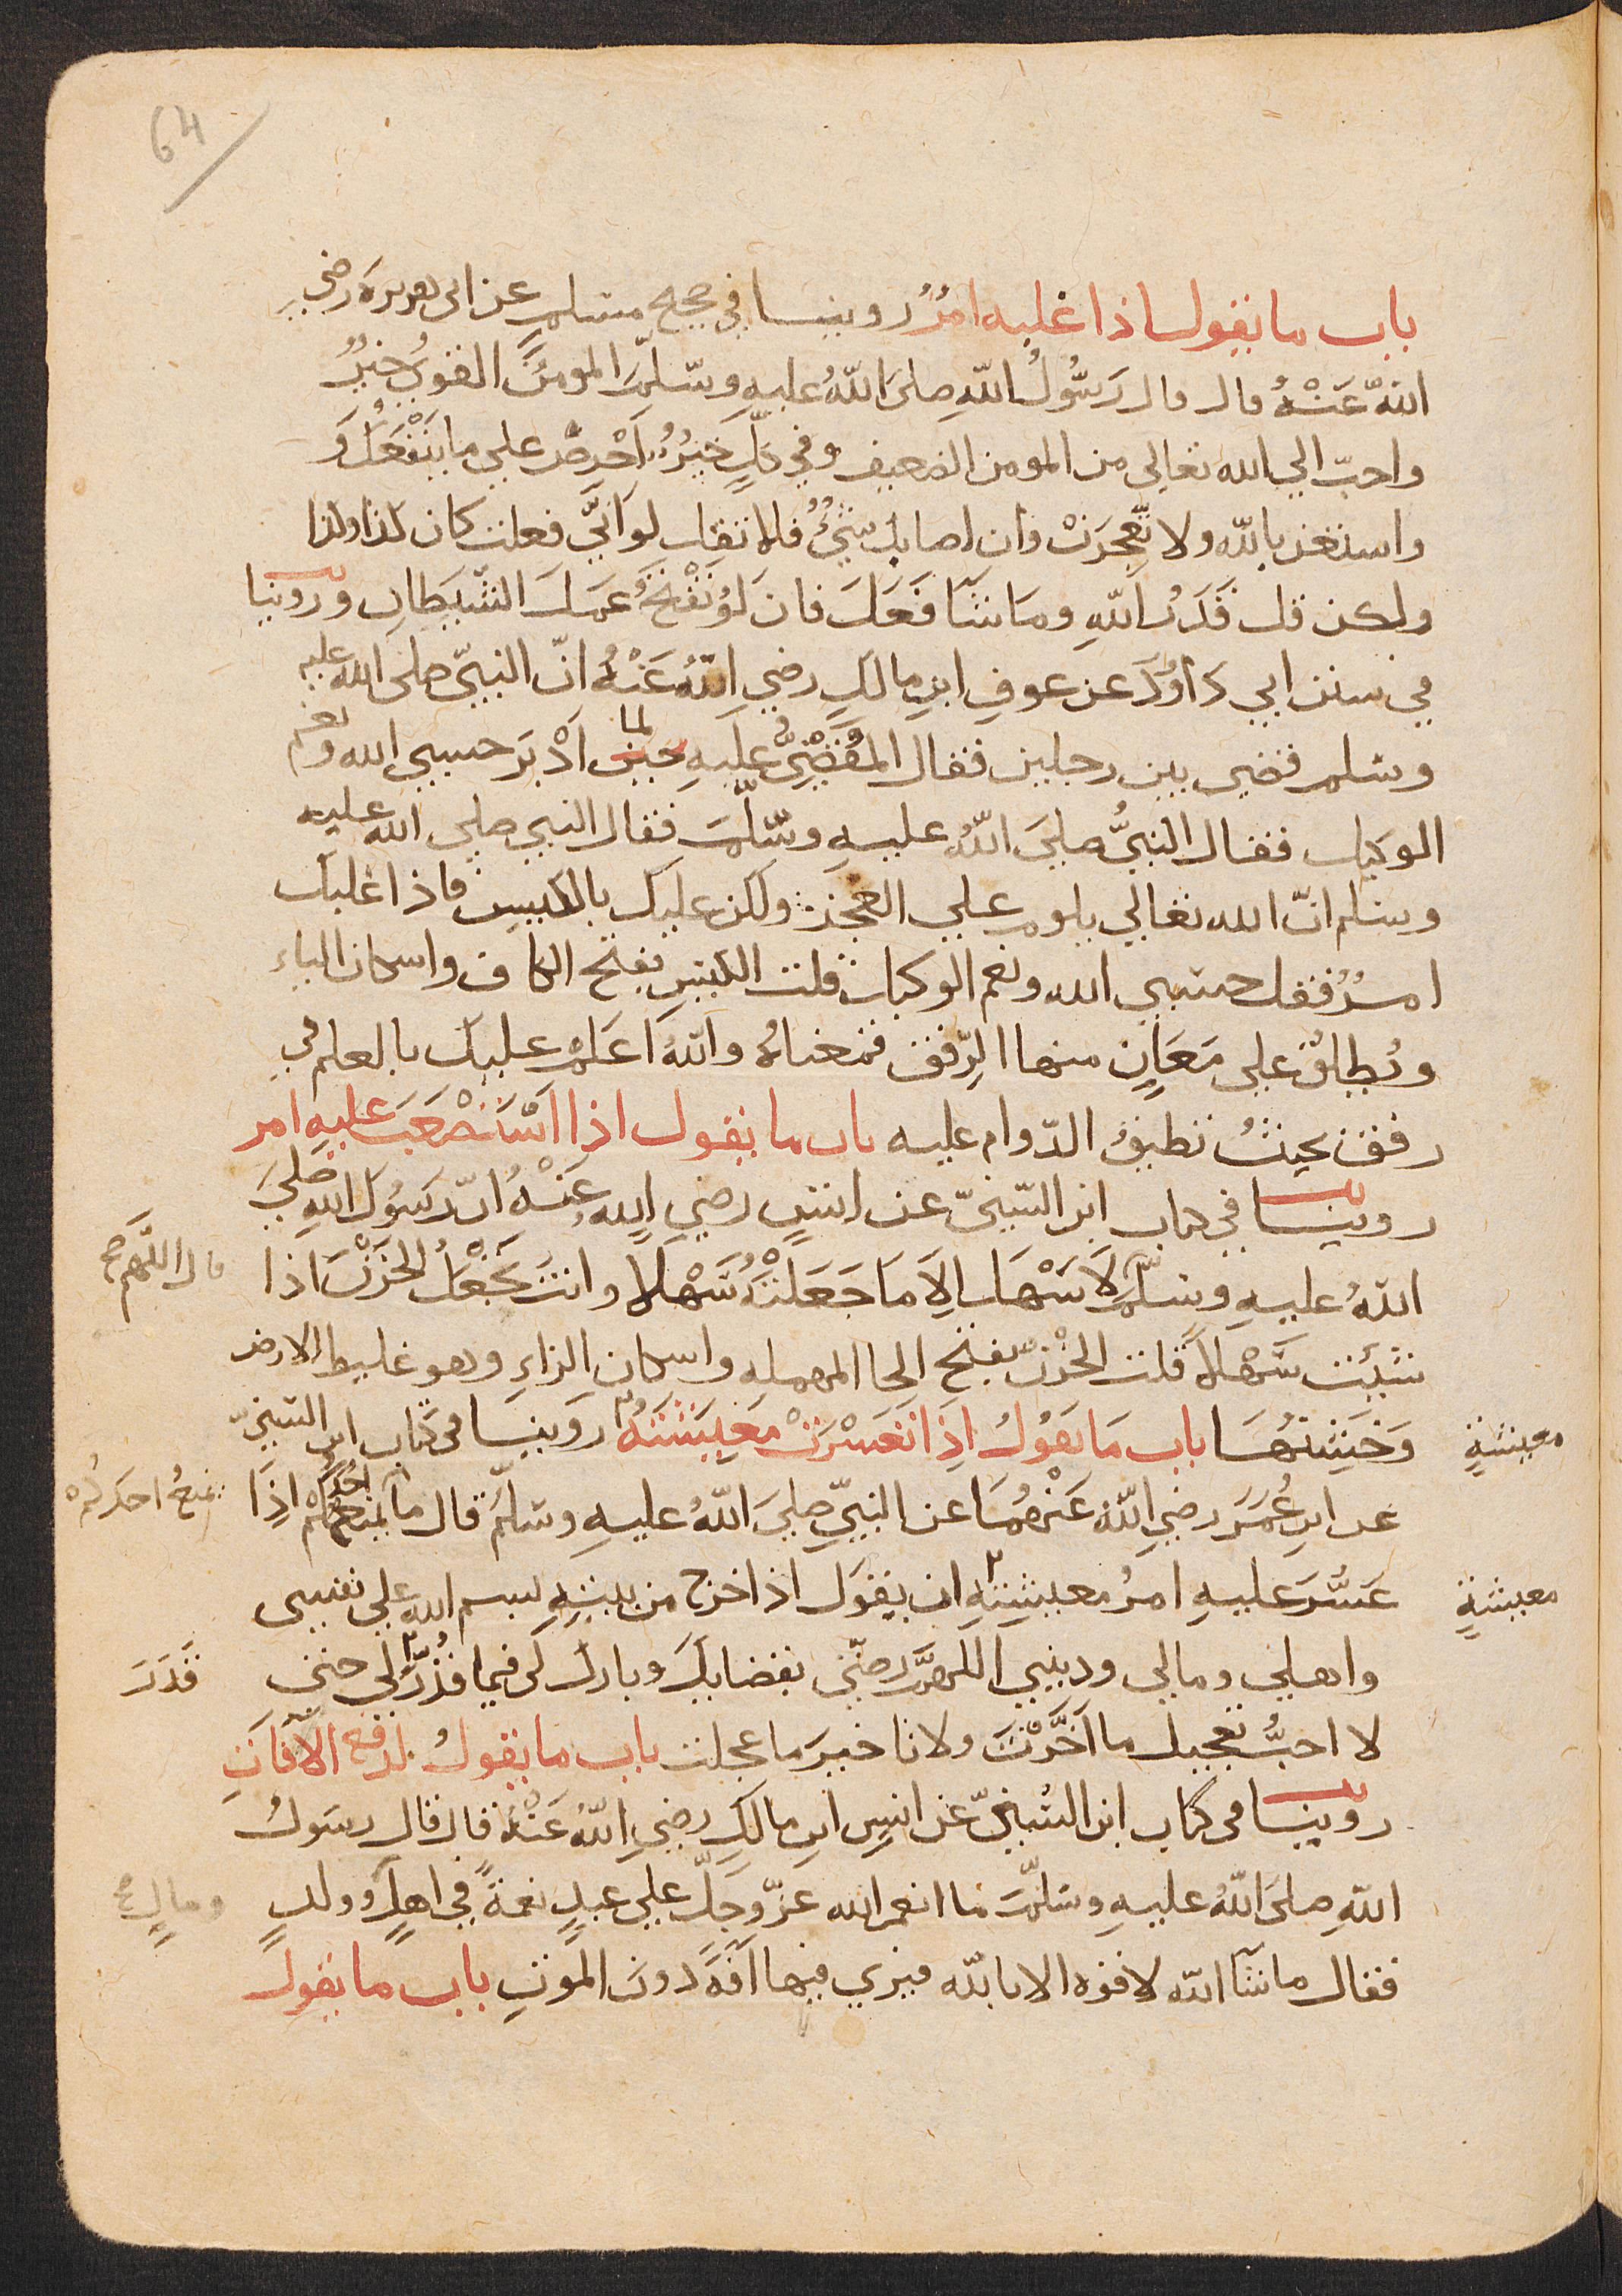 64
باب ما يقول اذا غلبه امرٌ روينا في صحيح مسلم عن ابي هريرة رضي
اللهُ عَنْهُ قال قال رَسُولُ اللهِ صلىَ اللهُ عليهِ وسَلّمَ المومنُ القوىُّ خيرٌ
واحبّ الي الله تعالي من المومن الضعيف وفي كلٍّ خيرٌ اَحْرِصْ علي ما يَنْفَعُكَ وَ
واستعن بالله ولا تَعْجِزَنْ وان اصابك شيءٌ فلا تقل لو اَنّيَ فعلت كان كذا وكذا
ولكن قل قَدَرُ اللهِ ومَا شَآ فَعَلَ فان لَوْ تَفْتَحُ عَمَلَ الشَّيطَانِ وروينا
في سنن ابي دَاوُدَ عن عوفِ ابنِ مالكٍ رضي اللهُ عَنْهُ انّ النبيّ صلىَ الله عليه
وسلم قضي بين رجلين فقال المَقْضِيُّ عليهِ لما اَدْبَرَ حسبي الله ونعم
الوكيل فقال النبيُّ صلىَ اللهُ عليهِ وسَلّمَ فقال النبي صلي الله عليه
وسلم انّ الله تعالي يلوم علي العجز ولكن عليك بالكيس فاذا غلبك
امرٌ فقل حسبي الله ونعم الوكيل قلت الكيس بفتح الكاف واسكان الياء
ويُطلقُ على مَعَانٍ منها الرِّفق فمعناهُ واللهُ اَعلمُ عليك بالعلم في
رفق بحيثُ تطيقُ الدّوام عليه باب ما يقول اذا اسْتَصْعَبَ عليهِ امر
روينا في كتاب ابن السّنيّ عن انسٍ رضي اللهِ عَنْهُ انّ رسُولَ اللهِ صَلىَ
اللهُ عليهِ وسلّمَ لاَ سَهْلَ الاَ مَا جَعَلْتَهُ سَهْلاً وانتَ تَجْعَلُ الحَزْنَ اذا
قال اللّهم صح
شئتَ سَهْلاً قلت الحَزْنُ بفتح الحا المهمله واسكان الزاءِ وهو غليط الارض
وَخَشِنُهَا باب مَا يَقُولُ اذِا تَعَسَّرَتْ مَعِيشَتَهُ روينا في كتاب ابن السّنيّ
معيشتهِ
عن ابنِ عُمَرَ رضي اللهُ عَنْهُمَا عن النبيّ صلىَ اللهُ عليهِ وسلّمَ قال ما يمنع احدكم اذَِا
يمنعُ احدَكُمْ
عَسُرَ عليهِ امرُ معيشتِهِ ان يقولَ اذا خرج من بيتِهِ بسم الله علي نفسي
معيشتهِ
واهلي ومالي وديني اللهمَّ رضّني بقضايكَ وبارك لي فيما قُدِّرَ لي حتي
قَدَرَ
لا احبُّ تعجيل ما اَخَّرْتَ ولا تاخير ما عجلت باب ما يقولُ لدفع الآفاتِ
روينا في كتاب ابن السُنيّ عن انسِ ابنِ مالكٍ رضي اللهُ عَنْهُ قال قال رسَولُ
اللهِ صلىَ اللهُ عليهِ وسلّمَ ما انعم الله عزّ وَجَلّ علي عبدٍ نعمةً في اهلٍ وولدٍ
ومالٍ صح
فقال ما شآ الله لا قوه الا بالله فيري فيها آفَةً دونَ الموتِ باب ما يقول